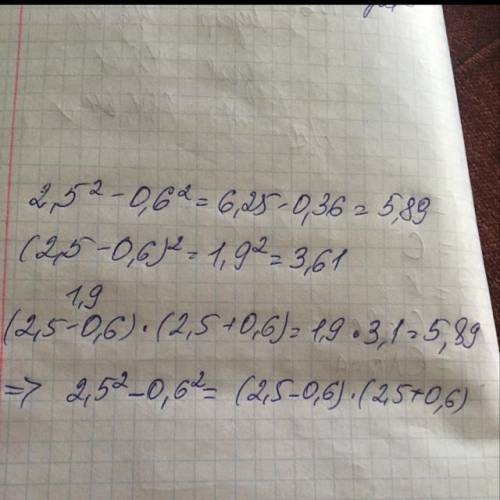 2,5² - 0,6² = 6,25 - 0,36 = 5,89
(2,5 - 0,6)² = 1,9² = 3,61
1,9
(2,5 - 0,6) · (2,5 + 0,6) = 1,9 · 3,1 = 5,89
=> 2,5² - 0,6² = (2,5 - 0,6) · (2,5 + 0,6)